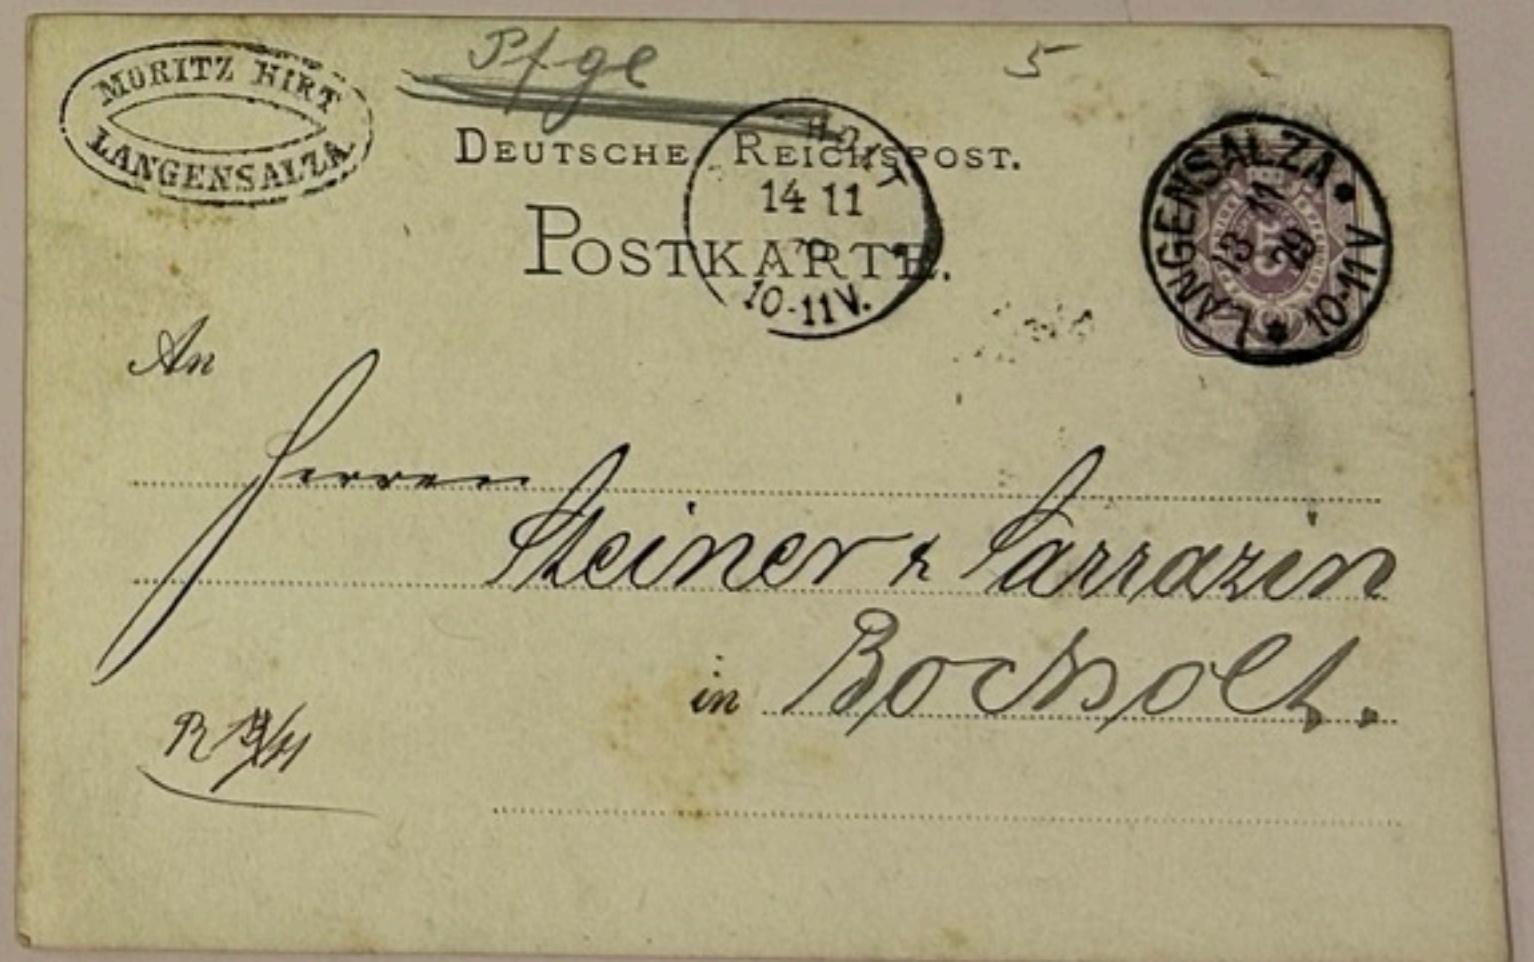 MORITZ HIRT
LANGENSALZA.
Pfge
5
DEUTSCHE REICHSPOST.
POSTKARTE.
14 11
10-11V.
LANGENSALZA
13 11
89
10-11V
An
Herren
Steiner & Sarrazin
in Bocholt.
R